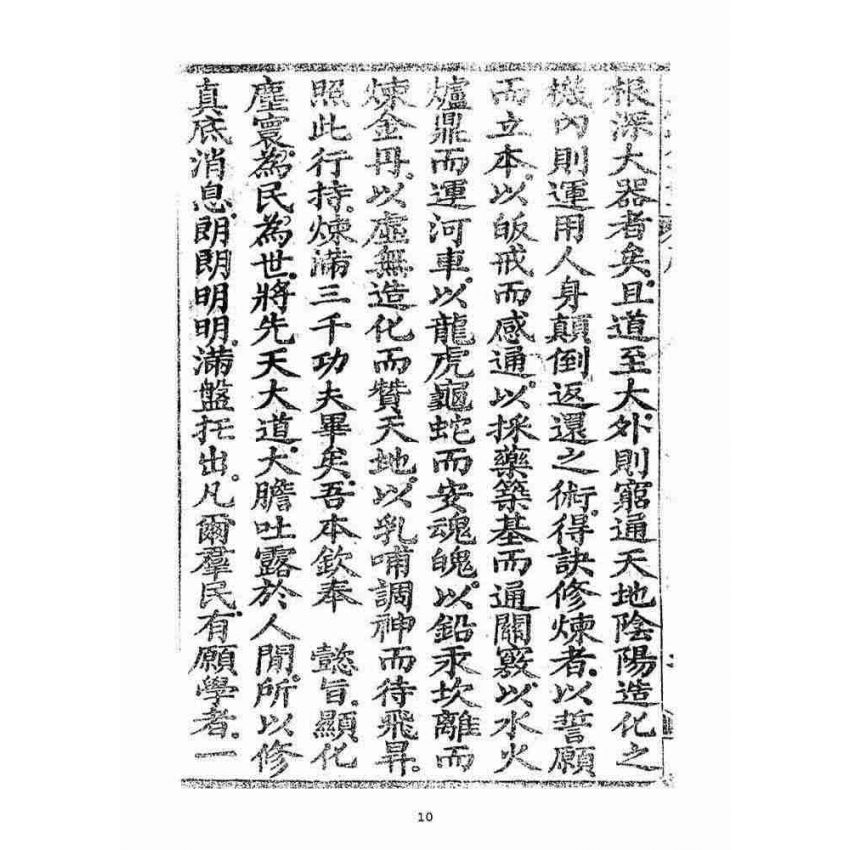 根深大器者矣。且道至大。外則窮通天地陰陽造化之
機。內則運用人身顛倒返還之術。得訣修煉者。以誓願
而立本。以皈戒而感通。以採藥築基而通關竅。以水火
爐鼎而運河車。以龍虎龜蛇而安魂魄。以鉛汞坎離而
煉金丹。以虛無造化而贊天地。以乳哺調神而待飛昇。
照此行持。煉滿三千功夫畢矣。吾本欽奉　懿旨。顯化
塵寰。為民為世。將先天大道。大膽吐露於人間。所以修
真底消息。朗朗明明。滿盤托出。凡爾羣民。有願學者。一
10